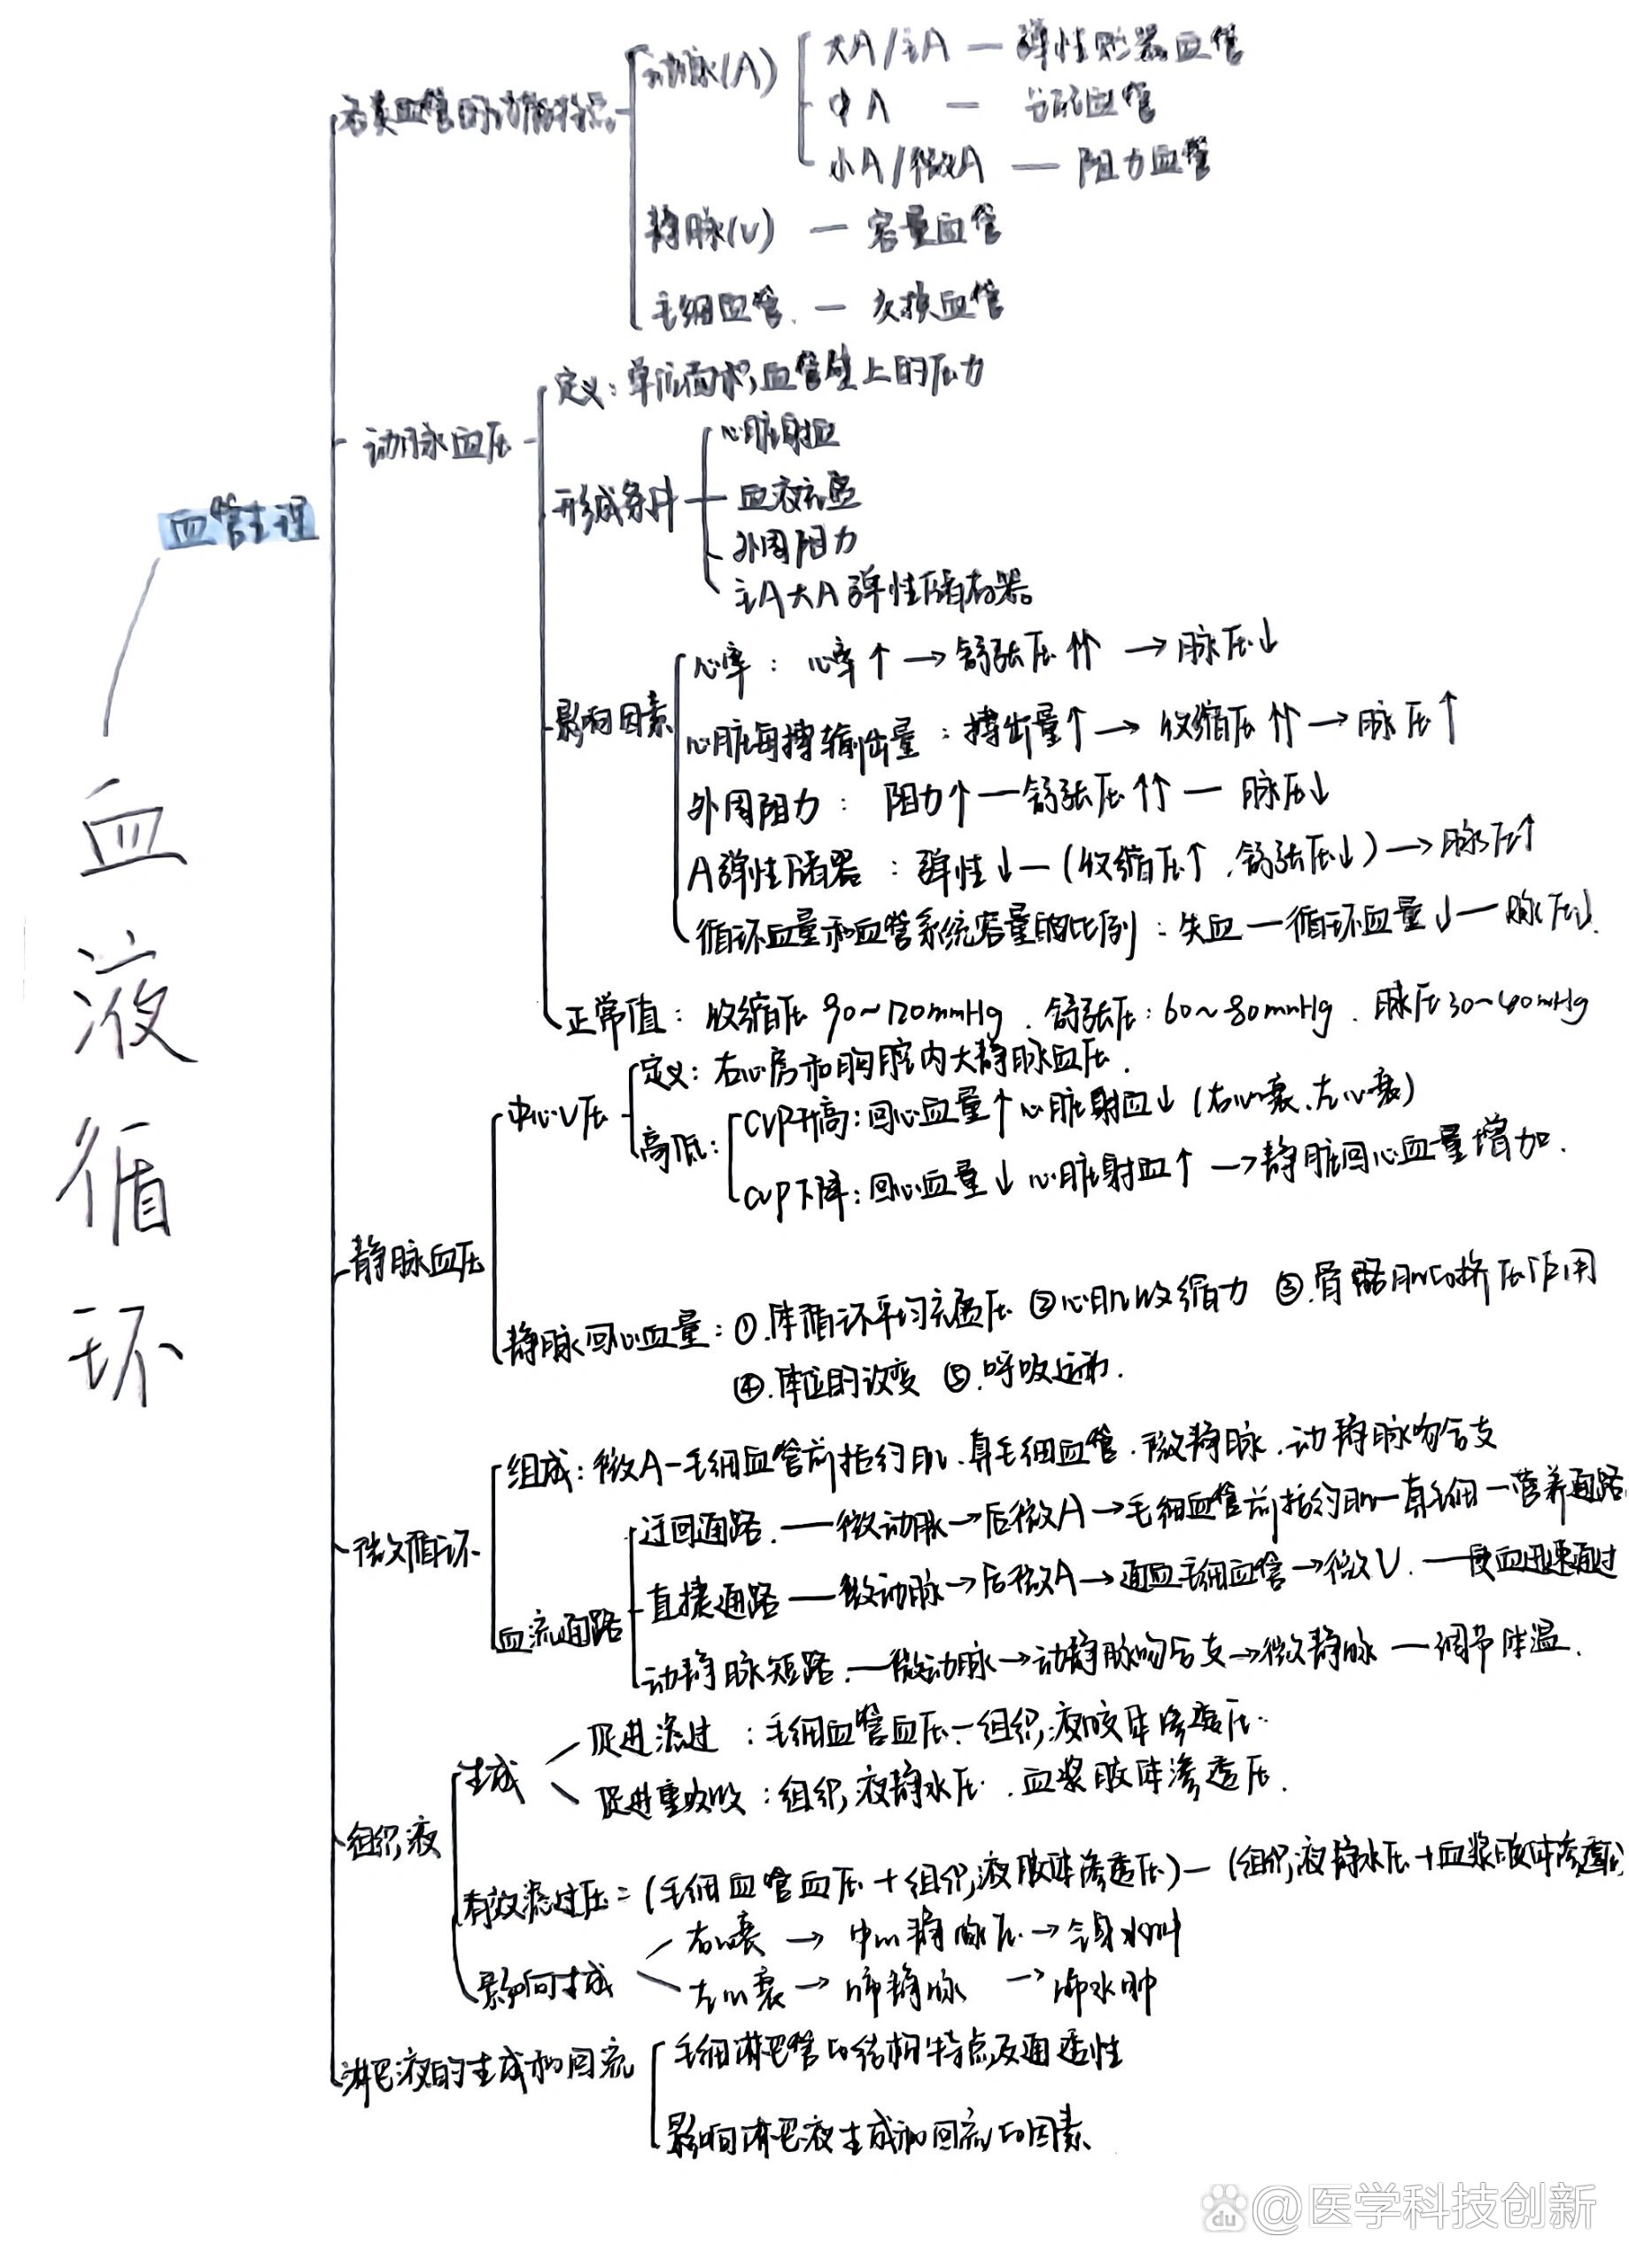 血液循环
血管生理
各类血管的功能特点
动脉(A)
大A/主A — 弹性贮器血管
中A — 分配血管
小A/微A — 阻力血管
静脉(V) — 容量血管
毛细血管 — 交换血管
动脉血压
定义：单位面积血管壁上的压力
形成条件
心脏射血
血液充盈
外周阻力
主A大A弹性储存器
影响因素
心率：心率↑→舒张压↑↑→脉压↓
心脏每搏输出量：搏出量↑→收缩压↑↑→脉压↑
外周阻力：阻力↑—舒张压↑↑—脉压↓
A弹性储器：弹性↓—(收缩压↑.舒张压↓)→脉压↑
循环血量和血管系统容量的比例：失血—循环血量↓—脉压↓.
正常值：收缩压90~120mmHg.舒张压:60~80mmHg.脉压30~40mmHg
静脉血压
中心V压
定义:右心房和胸腔内大静脉血压.
高低:
CVP升高:回心血量↑心脏射血↓(右心衰、左心衰)
CVP下降:回心血量↓心脏射血↑→静脏回心血量增加.
静脉回心血量：①.体循环平均充盈压 ②心肌收缩力 ③.骨骼肌的挤压作用
④.体位的改变 ⑤.呼吸运动.
微循环
组成:微A-毛细血管前括约肌.真毛细血管.微静脉.动静脉吻合支
血流通路
迂回通路.—微动脉→后微A→毛细血管前括约肌—真毛细—营养通路
直捷通路—微动脉→后微A→通血毛细血管→微V.—使血迅速通过
动静脉短路.—微动脉→动静脉吻合支→微静脉—调节体温.
组织液
生成
促进滤过：毛细血管血压—组织液胶体渗透压.
促进重吸收：组织液静水压.血浆胶体渗透压.
有效滤过压=(毛细血管血压+组织液胶体渗透压)—(组织液静水压+血浆胶体渗透压)
影响生成
右心衰→中心静脉压→全身水肿
左心衰→肺静脉→肺水肿
淋巴液的生成和回流
毛细淋巴管的结构特点及通透性
影响淋巴液生成和回流的因素
du @医学科技创新